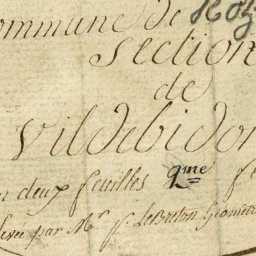 ommune de Roz
Section
de
Vildebidon
n deux feuilles 9me f
levée par Mr f. LeBreton Géomètr